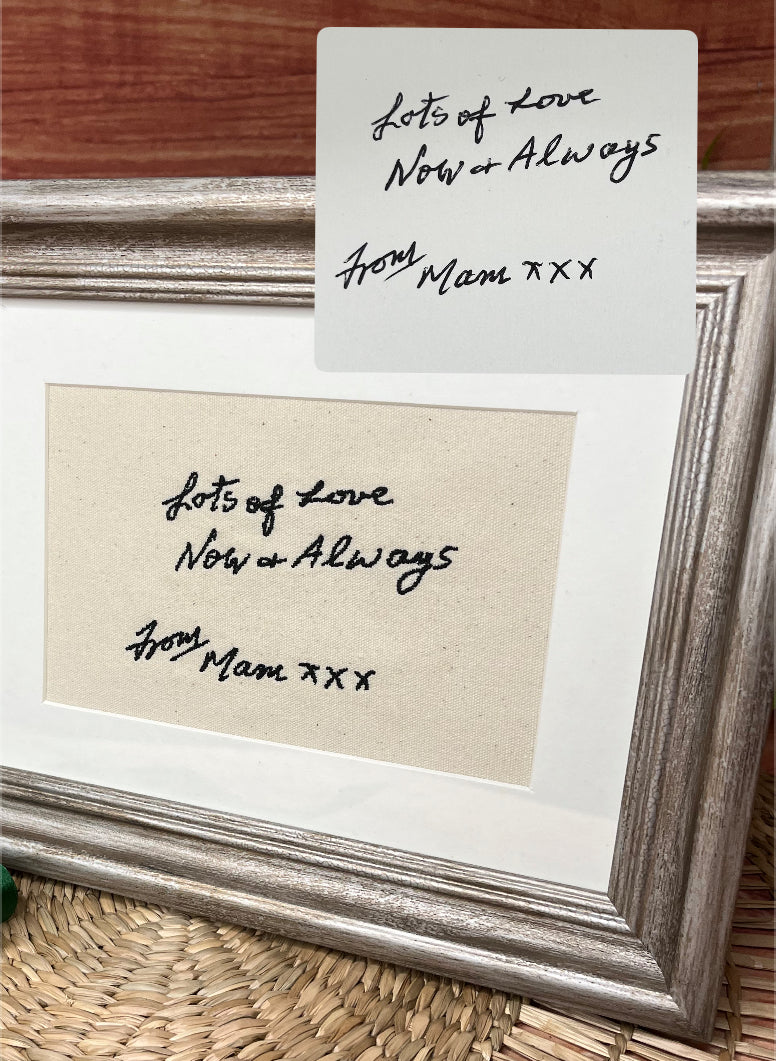 Lots of Love
Now + Always
From Mam xxx
Lots of Love
Now + Always
From Mam xxx